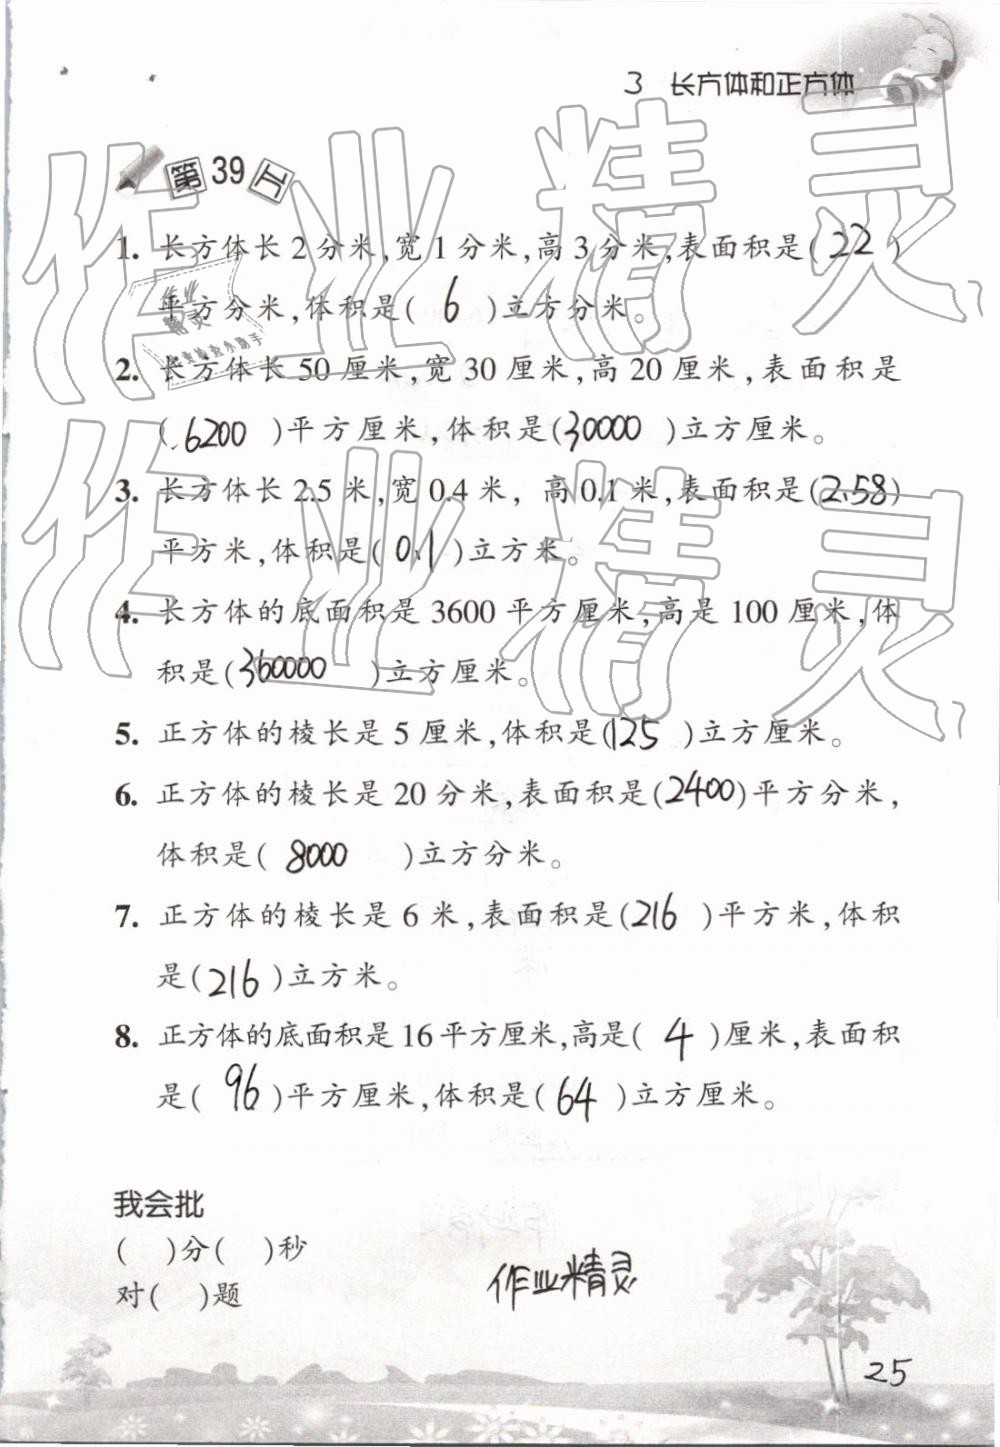 3 长方体和正方体
第39天
1. 长方体长2分米,宽1分米,高3分米,表面积是(22)
平方分米,体积是(6)立方分米。
2. 长方体长50厘米,宽30厘米,高20厘米,表面积是
(6200)平方厘米,体积是(30000)立方厘米。
3. 长方体长2.5米,宽0.4米,高0.1米,表面积是(2.58)
平方米,体积是(0.1)立方米。
4. 长方体的底面积是3600平方厘米,高是100厘米,体
积是(360000)立方厘米。
5. 正方体的棱长是5厘米,体积是(125)立方厘米。
6. 正方体的棱长是20分米,表面积是(2400)平方分米,
体积是(8000)立方分米。
7. 正方体的棱长是6米,表面积是(216)平方米,体积
是(216)立方米。
8. 正方体的底面积是16平方厘米,高是(4)厘米,表面积
是(96)平方厘米,体积是(64)立方厘米。
我会批
( )分( )秒
对( )题
作业精灵
25
作业精灵
作业精灵
作业
精灵